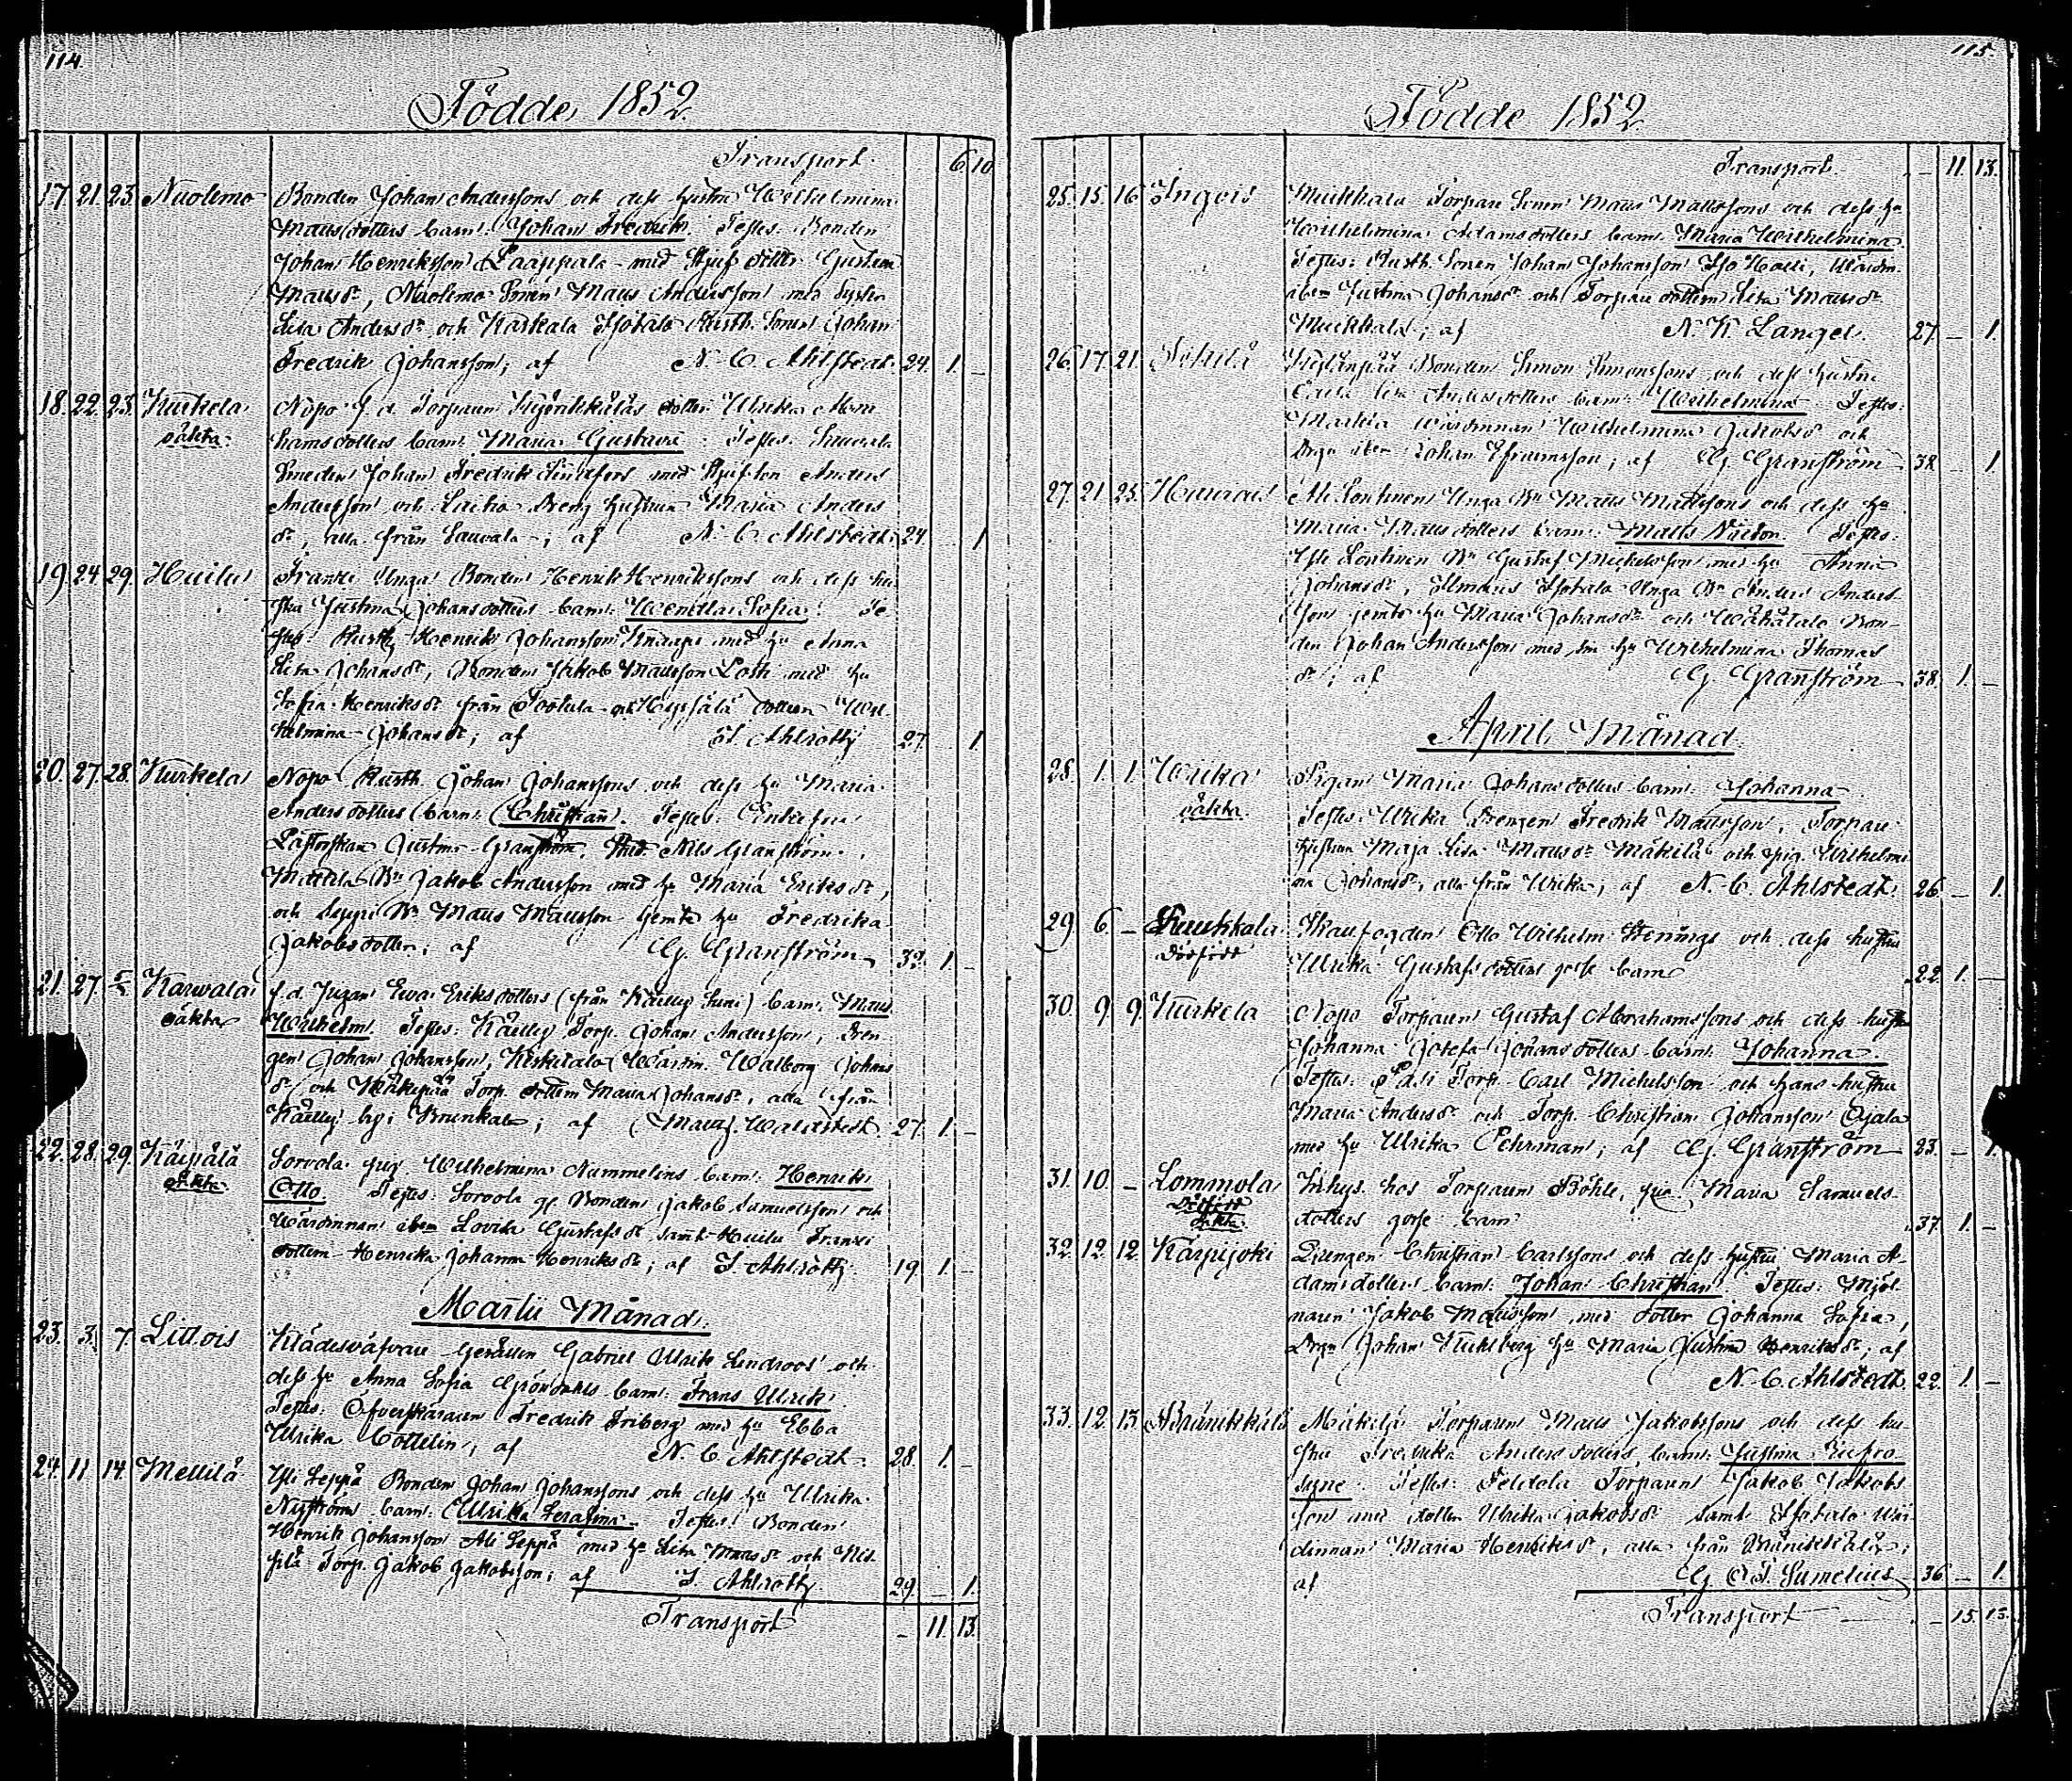 114.
Födde 1852
Transport. 6 10
17 21. 23. Nuolemo Bonden Johan Anderssons och dess hustru Wilhelmina
Mattsdotters barn: Johan Fredrik. Testes: Bonden
Johan Henriksson Laappala med Styfdotter Gustava
Mattsdr, Nuolemo Sonen Matts Andersson med Syster
Lisa Andersdr och Karkala Isotalo Rusth. Sonen Johan
Fredrik Johansson; af N. C. Ahlstedt. 24. 1. –
18. 22. 23. Kurkela Nopo f. d. Torparen dotter Ulrika Abra
oäkta. hamsdotters barn: Maria Gustava. Testes: Sauvala
Smeden Johan Fredrik med Styfson Anders
Andersson och Laitio Dreng hustrun Maria Anders
dr, alla från Sauvala; af N. C. Ahlstedt. 24. 1
19. 24. 29. Huilu Franzi Unga Bonden Henrik Henrikssons och dess hu
stru Justina Johansdotters barn: Wendla Sofia. Te
stes: Rusth. Henrik Johansson Knaapi med hu Anna
Lisa Johansdr, Bonden Jakob Mattsson Losti med hu
Sofia Henriksdr från dottern Wil
helmina Johansdr; af Ahlroth 27. 1
20. 27. 28. Kurkela Nopo Rusth. Johan Johanssons och dess hu Maria
Andersdotters barn: Christian. Testes: Enkefru
Justina Granström, Stud. Nils Granström,
Mattila Bn Jakob Andersson med hu Maria Eriksdr,
och Seppi Bn Matts Mattsson jemte hu Fredrika
Jakobsdotter; af G. Granström 32. 1. –
21. 27 Karvala f. d. Pigan Ewa Eriksdotters (från Kailly) barn: Matts
oäkta Wilhelm. Testes: Torp. Johan Andersson, Dren
gen Johan Johansson, Wärdin. Walborg Johans
dr och Torp. dottern Maria Johansdr, alla från
by; af 27. 1. –
22. 28. 29. Käipälä Sorvola pig. Wilhelmina Nummelins barn: Henrik
oäkta Otto. Testes: Sorvola gl Bonden Jakob Samuelsson och
Wärdinnan ibm Lovisa Gustafsdr samt Huilu Franzi
dottern Henrika Johanna Henriksdr; af J. Ahlroth 19. 1. –
Martii Månad.
23. 3. 7. Littois Klädesväfvare Gesällen Gabriel Ulrik Lindroos och
dess hu Anna Sofia Gröndahls barn: Frans Ulrik.
Testes: Öfverskäraren Fredrik Friberg med hu Ebba
Ulrika Cottelin; af N. C. Ahlstedt. 28. 1. –
24. 11 14. Mellilä Yli Seppä Bonden Johan Johanssons och dess hu Ulrika
Nyströms barn: Ulrika Serafina. Testes: Bonden
Henrik Johansson Ali Seppä med hu Lisa Mattsdr och
Torp. Jakob Jakobsson; af J. Ahlroth 29. – 1.
Transport – 11. 13.
115.
Födde 1852
Transport. – 11. 13.
25. 15. 16 Ingois Muikkala Torpare Sonen Matts Mattssons och dess hu
Wilhelmina Adamsdotters barn: Maria Wilhelmina.
Testes: Rusth. Sonen Johan Johansson Iso Halli, Wärdin.
ibm Justina Johansdr och Torpare dottern Lisa Mattsdr
Muikkala; af N. K. Langel. 27. – 1.
26. 17. 21. Bonden Simon Simonssons och dess hustru
Lisa Andersdotters barn: Wilhelmina. Testes:
Markula Wärdinnan Wilhelmina Jakobsdr och
ibm Johan Efraimsson; af G. Granström 38 – 1
27. 21 25. Ali Lontinen Unga Bn Matts Mattssons och dess hu
Maria Mattsdotters barn: Matts Viktor. Testes:
Yli Lontinen Bn Gustaf Mickelsson med hu Anna
Johansdr, Ilmaris Isotalo Unga Bn Anders Anders
son jemte hu Maria Johansdr och Bon
den Johan Andersson med sin hu Wilhelmina Thomas
dr; af G. Granström 38. 1. –
April Månad.
28. 1. 1. Wirka Pigan Maria Johansdotters barn: Johanna.
oäkta. Testes: Wirka Drengen Fredrik Mattsson, Torpare
hustrun Maja Lisa Mattsdr Mäkilä och pig. Wilhelmi
na Johansdr, alla från Wirka; af N. C. Ahlstedt. 26. – 1.
29. 6. – Ruukkala Skaufogden Otto Wilhelm och dess hustru
dödfödd Ulrika Gustafsdotters gosse barn 22. 1. –
30. 9. 9. Kurkela Nopo Torparen Gustaf Abrahamssons och dess hustru
Johanna Josefa Johansdotters barn: Johanna.
Testes: Torp. Carl Mickelsson och hans hustru
Maria Andersdr och Torp. Christian Johansson Ojala
med hu Ulrika Öehrman; af G. Granström 23. – 1
31. 10. – Lommola Inhys. hos Torparen Böhle, pig. Maria Samuels
Dödfödd oäkta dotters gosse barn 37. 1. –
32. 12. 12. Karpijoki Drengen Christian Carlssons och dess hustru Maria A
damsdotters barn: Johan Christian. Testes: Mjöl
naren Jakob Mattsson, med dotter Johanna Sofia,
Johan hu Maria Justina Henriksdr; af
N. C. Ahlstedt. 22. 1. –
33. 12. 13. Mäkilä Torparen Matts Jakobssons och dess hu
stru Fredrika Andersdotters barn: Justina Eufro
syne. Testes: Torparen Jakob Jakobs
son med dotter Ulrika Jakobsdr samt Isotalo Wär
dinnan Maria Henriksdr, alla från
af G. O. T. Sumelius 36 – 1.
Transport – 15. 15.